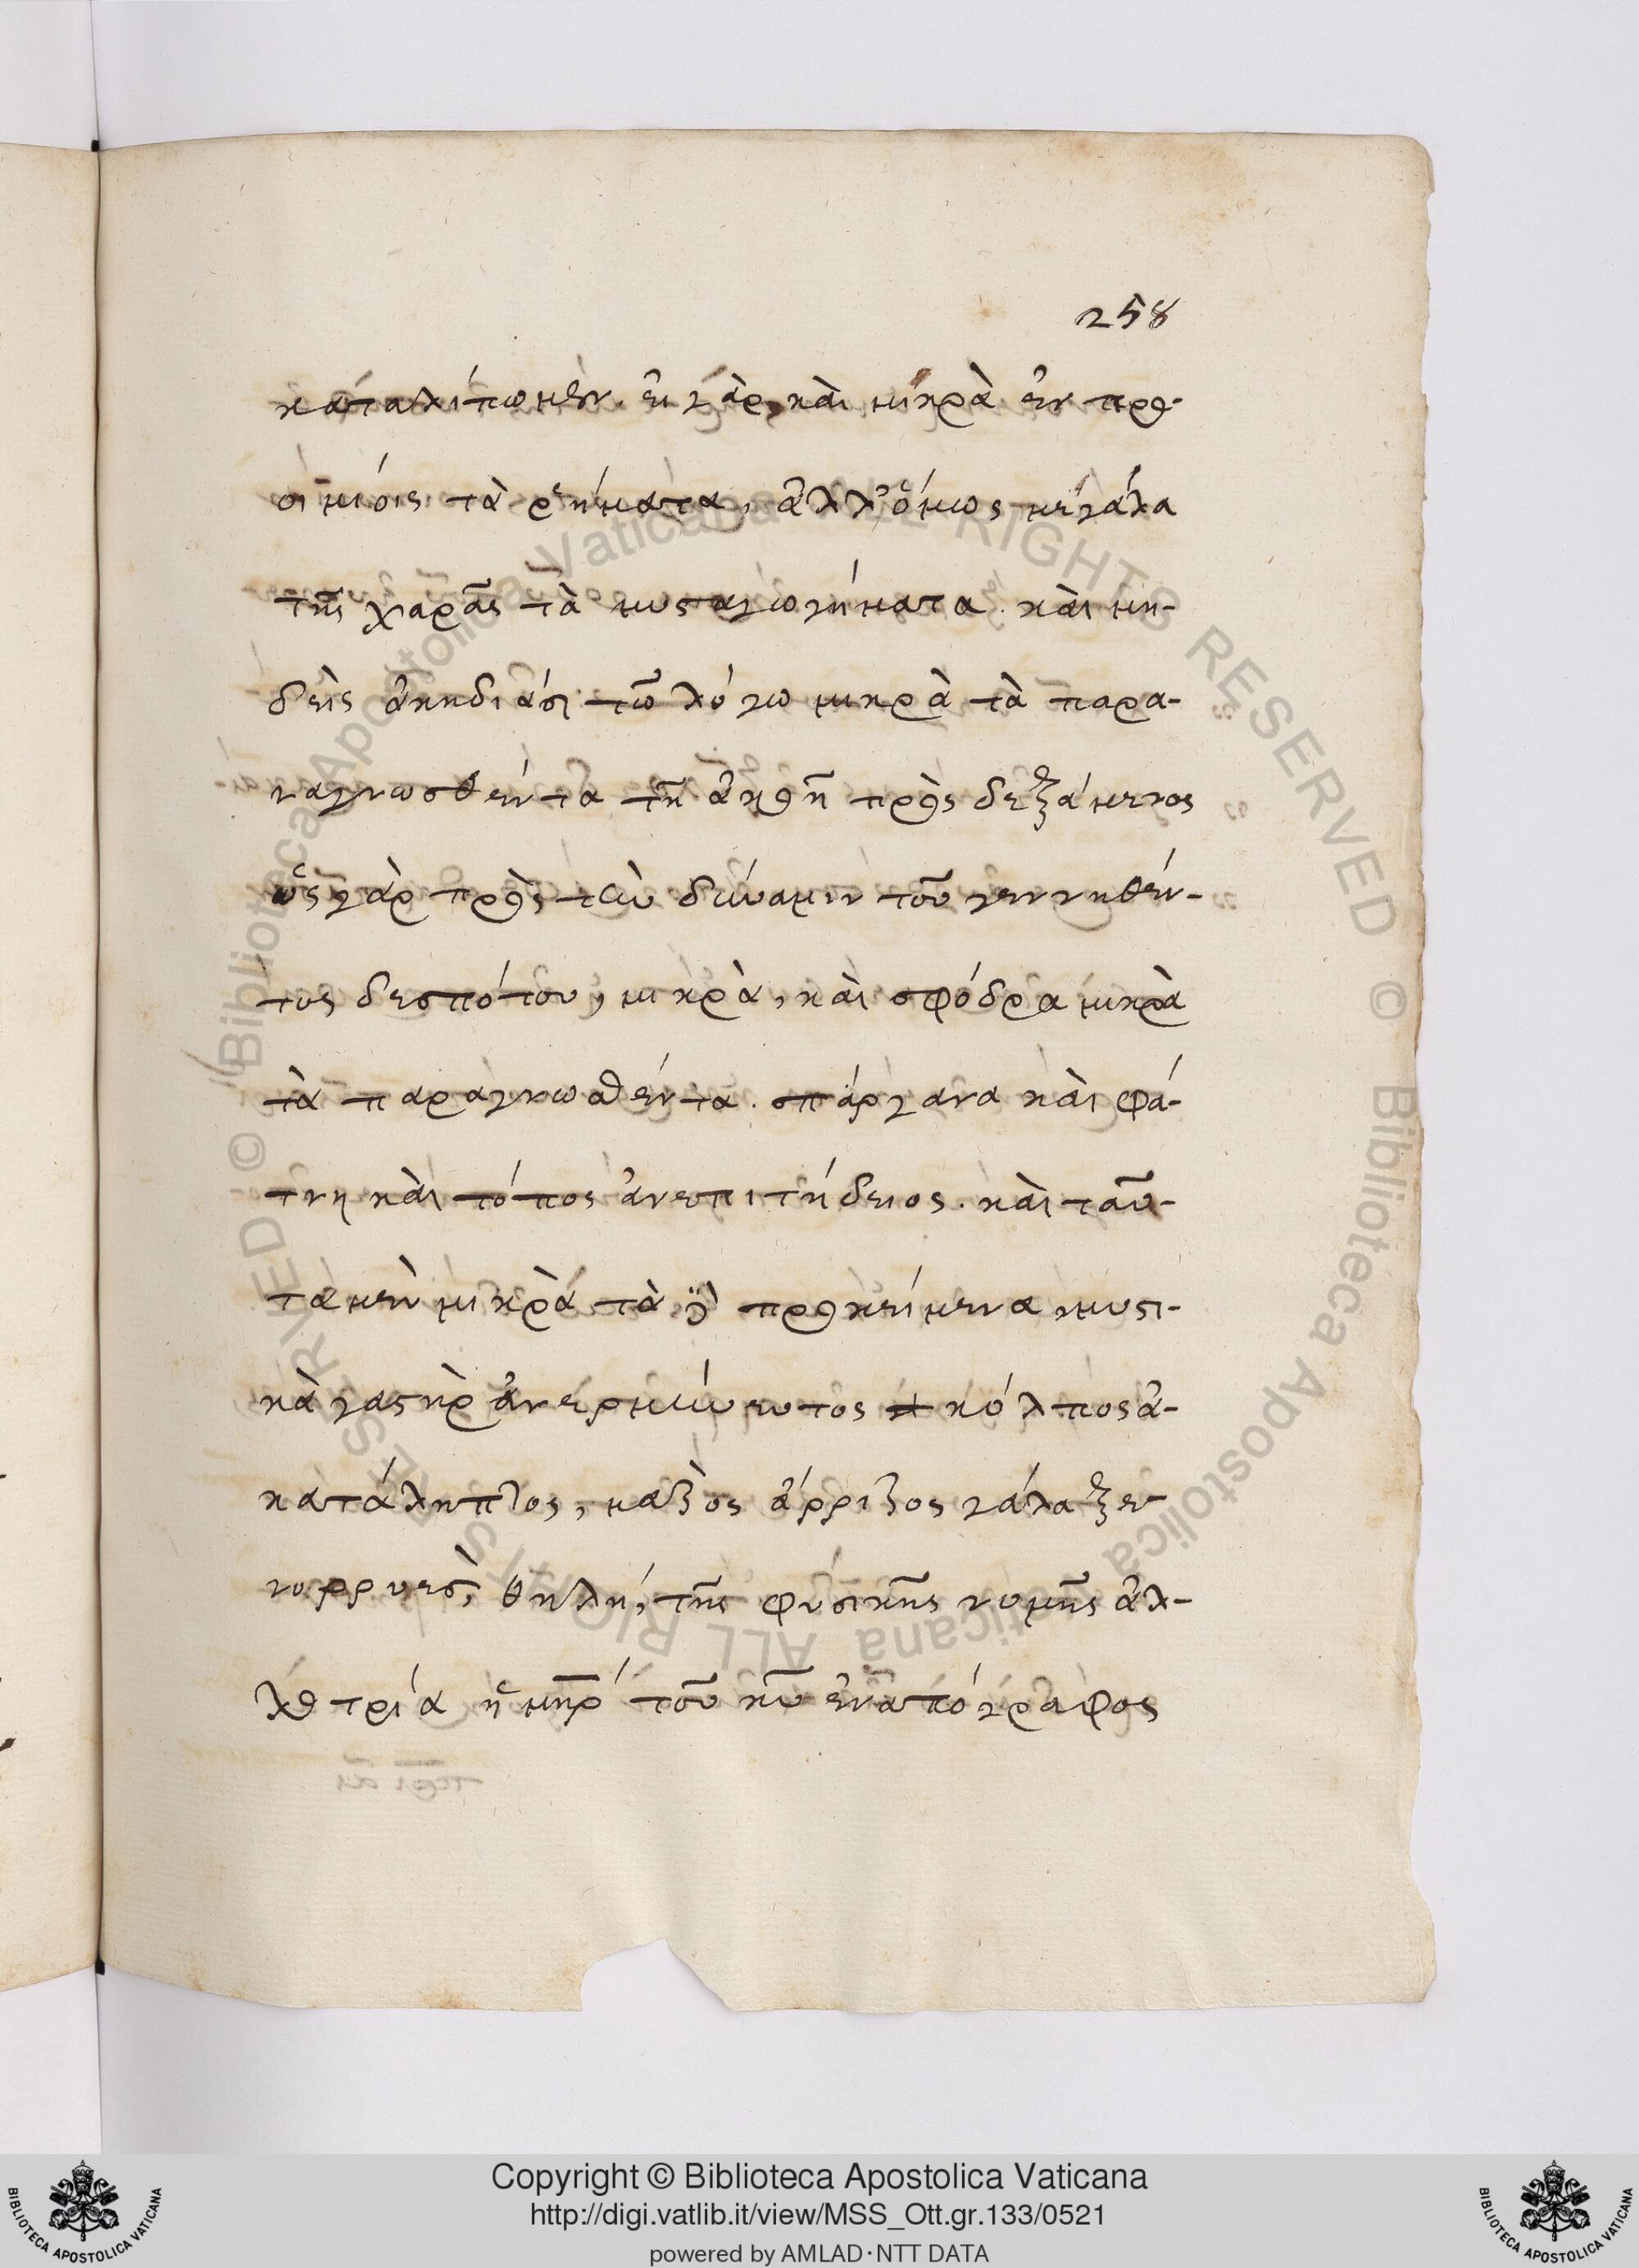 258
καταλίπωμεν. εἰ γὰρ καὶ μικρὰ ἐν προ-
οιμίοις τὰ ῥήματα, ἀλλ' ὅμως μεγάλα
τῆς χαρᾶς τὰ μυσταγωγήματα. καὶ μη-
δεὶς ἀκηδιάσῃ τῷ λόγῳ μικρὰ τὰ παρα-
ναγνωσθέντα τῇ ἀκοῇ προσδεξάμενος
ὡς γὰρ πρὸς τὴν δύναμιν τοῦ γεννηθέν-
τος δεσπότου, μικρὰ, καὶ σφόδρα μικρὰ
τὰ παραγνωθέντα. σπάργανα καὶ φά-
τνη καὶ τόπος ἀνεπιτήδειος. καὶ ταῦ-
τα μὲν μικρὰ τὰ δὲ προκείμενα μυστι-
κὰ γαστὴρ ἀνερμήνευτος κόλπος ἀ-
κατάληπτος, μαζὸς ἄρριζος γάλα ξε-
νορρυὲς, θηλὴ, τῆς φυσικῆς νομῆς ἀλ-
λοτρία ἡ μηρ τοῦ κυ ἐναπόγραφος
Copyright © Biblioteca Apostolica Vaticana
http://digi.vatlib.it/view/MSS_Ott.gr.133/0521
powered by AMLAD·NTT DATA
BIBLIOTECA APOSTOLICA VATICANA
BIBLIOTECA APOSTOLICA VATICANA
© Biblioteca Apostolica Vaticana ALL RIGHTS RESERVED
© Biblioteca Apostolica Vaticana ALL RIGHTS RESERVED